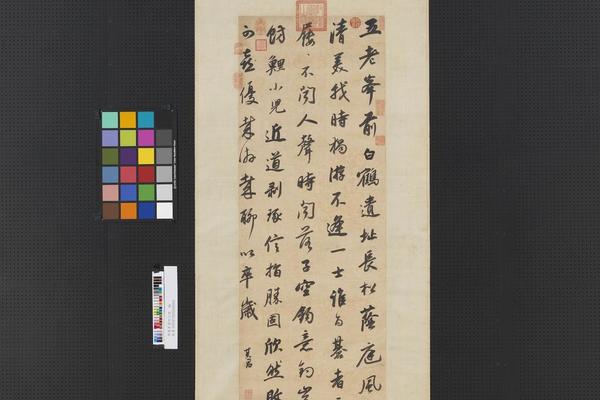 五老峯前白鶴遺址長松蔭庭風
清美我時獨游不逢一士誰與棊者
屨二不聞人聲時聞落子空鉤意釣豈
魴鯉小兒近道剝琢信指勝固欣然敗
可喜優哉游哉聊以卒歲
其昌